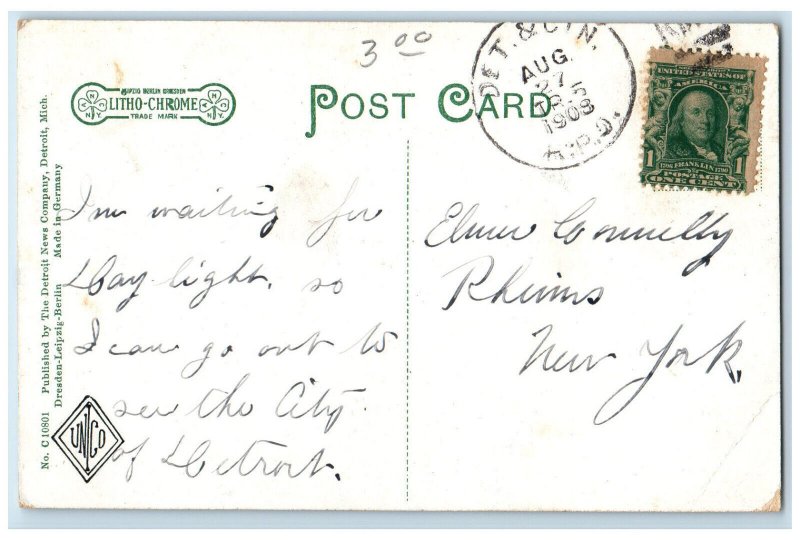 3 00
LEIPZIG BERLIN DRESDEN
LITHO-CHROME
TRADE MARK
N Y
N Y
POST CARD
DET. & CIN.
AUG.
27
1908
R.P.O.
UNITED STATES OF
AMERICA
1 1706 FRANKLIN 1790 1
POSTAGE
ONE CENT
No. C 10801 Published by The Detroit News Company, Detroit, Mich.
Dresden-Leipzig-Berlin Made in Germany
I'm waiting for
Day light. so
I can go out to
see the City
of Detroit.
Elmer Connelly
Rheims
New York.
UNCO